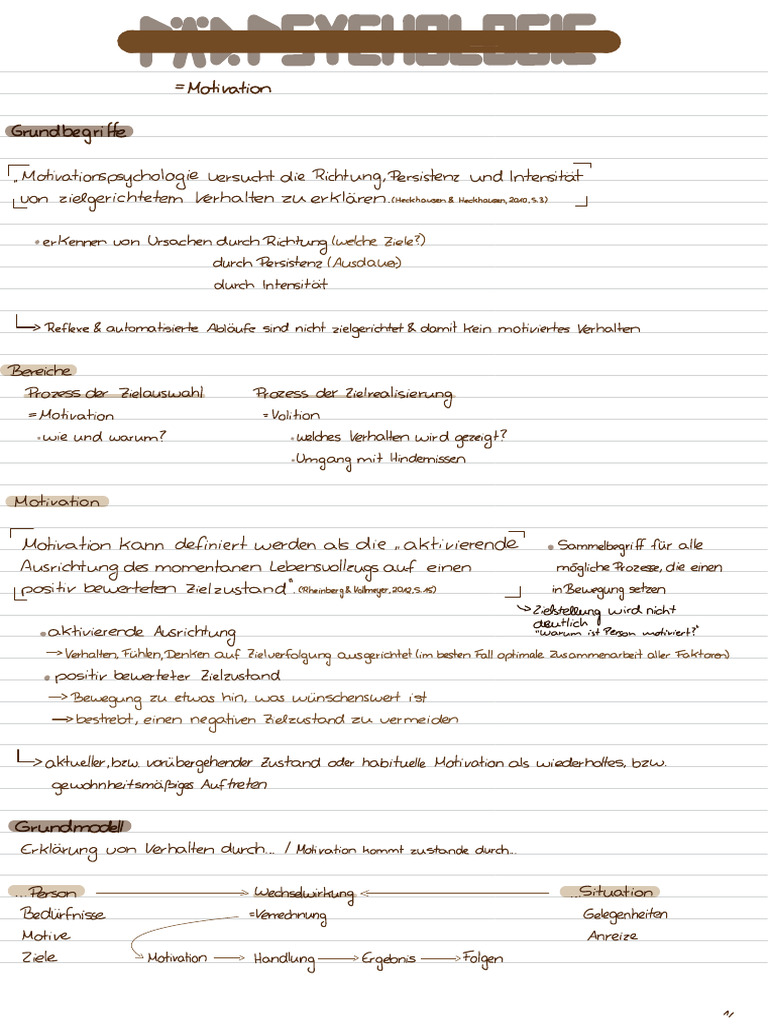 PÄD. PSYCHOLOGIE
= Motivation
Grundbegriffe
„Motivationspsychologie versucht die Richtung, Persistenz und Intensität
von zielgerichtetem Verhalten zu erklären. (Heckhausen & Heckhausen, 2010, S.3)
• erkennen von Ursachen durch Richtung (welche Ziele?)
durch Persistenz (Ausdauer)
durch Intensität
↳ Reflexe & automatisierte Abläufe sind nicht zielgerichtet & damit kein motiviertes Verhalten
Bereiche
Prozess der Zielauswahl Prozess der Zielrealisierung
= Motivation = Volition
• wie und warum? • welches Verhalten wird gezeigt?
• Umgang mit Hindernissen
Motivation
Motivation kann definiert werden als die „aktivierende • Sammelbegriff für alle
Ausrichtung des momentanen Lebensvollzugs auf einen mögliche Prozesse, die einen
positiv bewerteten Zielzustand". (Rheinberg & Vollmeyer, 2012, S.15) in Bewegung setzen
↳ Zielstellung wird nicht
deutlich
"warum ist Person motiviert?"
• aktivierende Ausrichtung
→ Verhalten, Fühlen, Denken auf Zielverfolgung ausgerichtet (im besten Fall optimale Zusammenarbeit aller Faktoren)
• positiv bewerteter Zielzustand
→ Bewegung zu etwas hin, was wünschenswert ist
→ bestrebt, einen negativen Zielzustand zu vermeiden
↳ aktueller, bzw. vorübergehender Zustand oder habituelle Motivation als wiederholtes, bzw.
gewohnheitsmäßiges Auftreten
Grundmodell
Erklärung von Verhalten durch... / Motivation kommt zustande durch...
...Person → Wechselwirkung ← ...Situation
Bedürfnisse = Verrechnung Gelegenheiten
Motive Anreize
Ziele → Motivation → Handlung → Ergebnis → Folgen